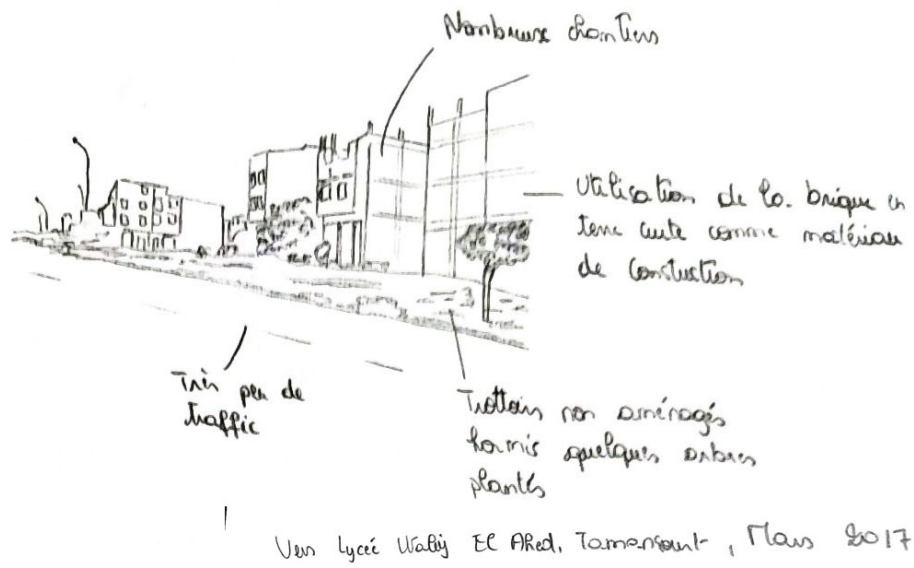 Nombreux chantiers
Utilisation de la brique en
terre cuite comme matériau
de construction
Très peu de
traffic
Trottoirs non aménagés
hormis quelques arbres
plantés
Vers Lycée Waliy El Ahed, Tamansourt, Mars 2017